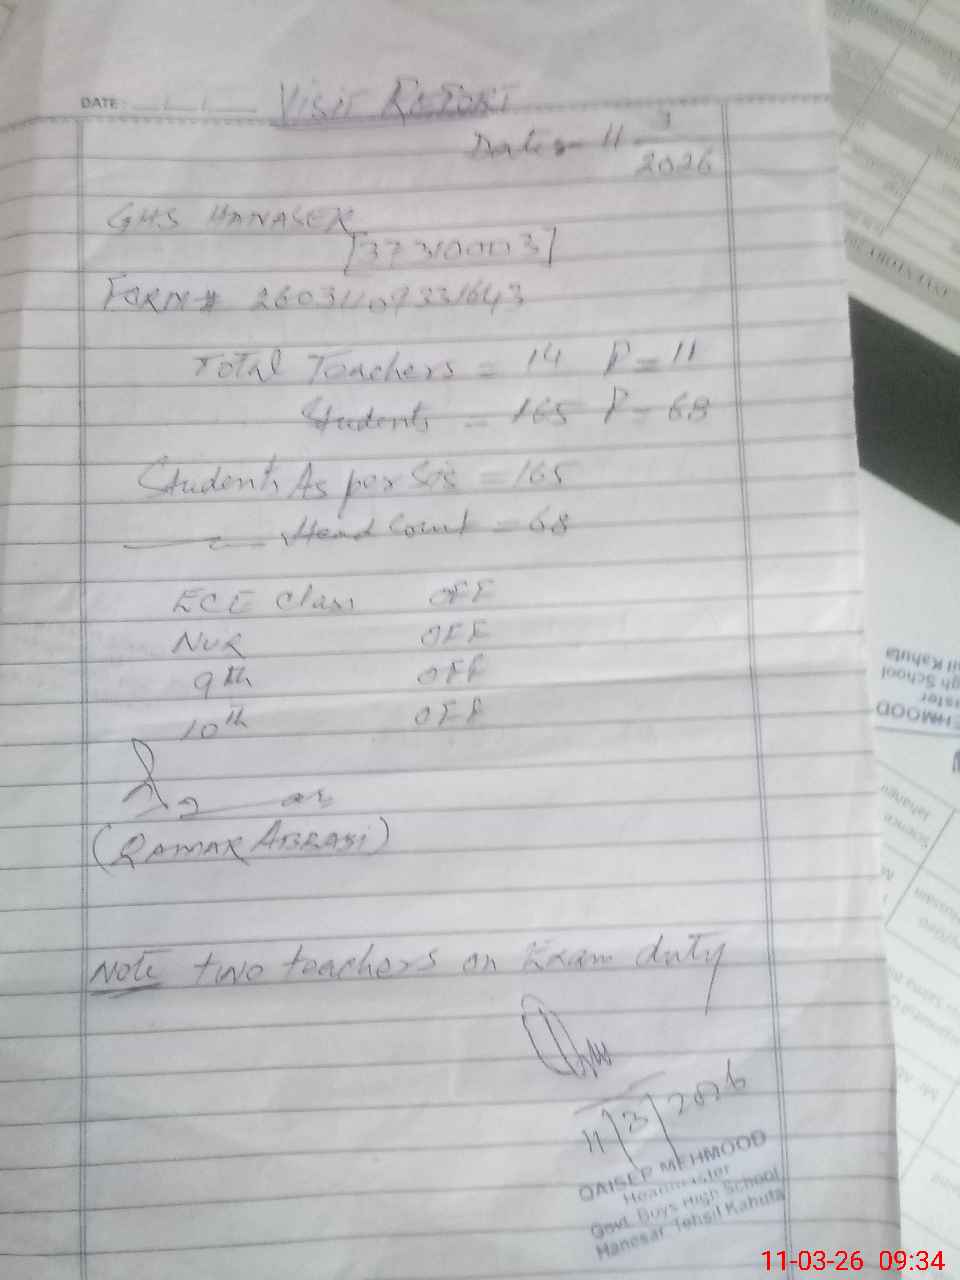 DATE:
VISIT REPORT
Date:- 11 3
2026
GHS HANASER
[37310003]
FORM# 26031109331643
Total Teachers = 14 P = 11
Students = 165 P = 68
Students As per Sis = 165
Head Count = 68
ECE Class OFF
NUR OFF
9th OFF
10th OFF
(QAMAR ABBASI)
Note two teachers on Exam duty
11/3/2026
QAISER MEHMOOD
Headmaster
Govt. Boys High School
Hanesar Tehsil Kahuta
11-03-26 09:34